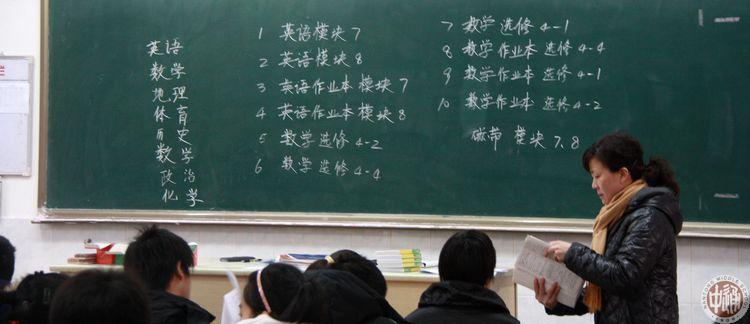 英语
数学
地理
体育
历史
数学
政治
化学
1 英语模块7
2 英语模块8
3 英语作业本模块7
4 英语作业本模块8
5 数学选修4-2
6 数学选修4-4
7 数学选修4-1
8 数学作业本选修4-4
9 数学作业本选修4-1
10 数学作业本选修4-2
磁带 模块7、8